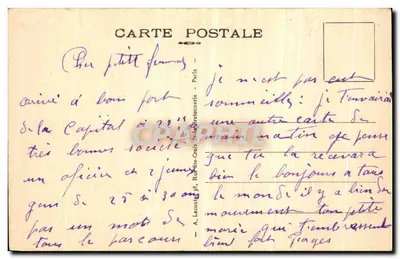 CARTE POSTALE
Cher p'tit
arrivé à bon port
de la Capital à
très bonne société
un officier et 2 jeunes
gens de 25 à 30 ans
pas un mot de
tous le parcours
je n'est pas
sommeillé: je t'enverrai
une autre carte de
matin je pense
que tu la recevera
bien le bonjours a tous
le monde il y a bien du
mouvement ton petite
mariée qui t'embrasse
bien fort Georges
A. Leconte, 38, Rue Ste-Croix de la Bretonnerie - Paris